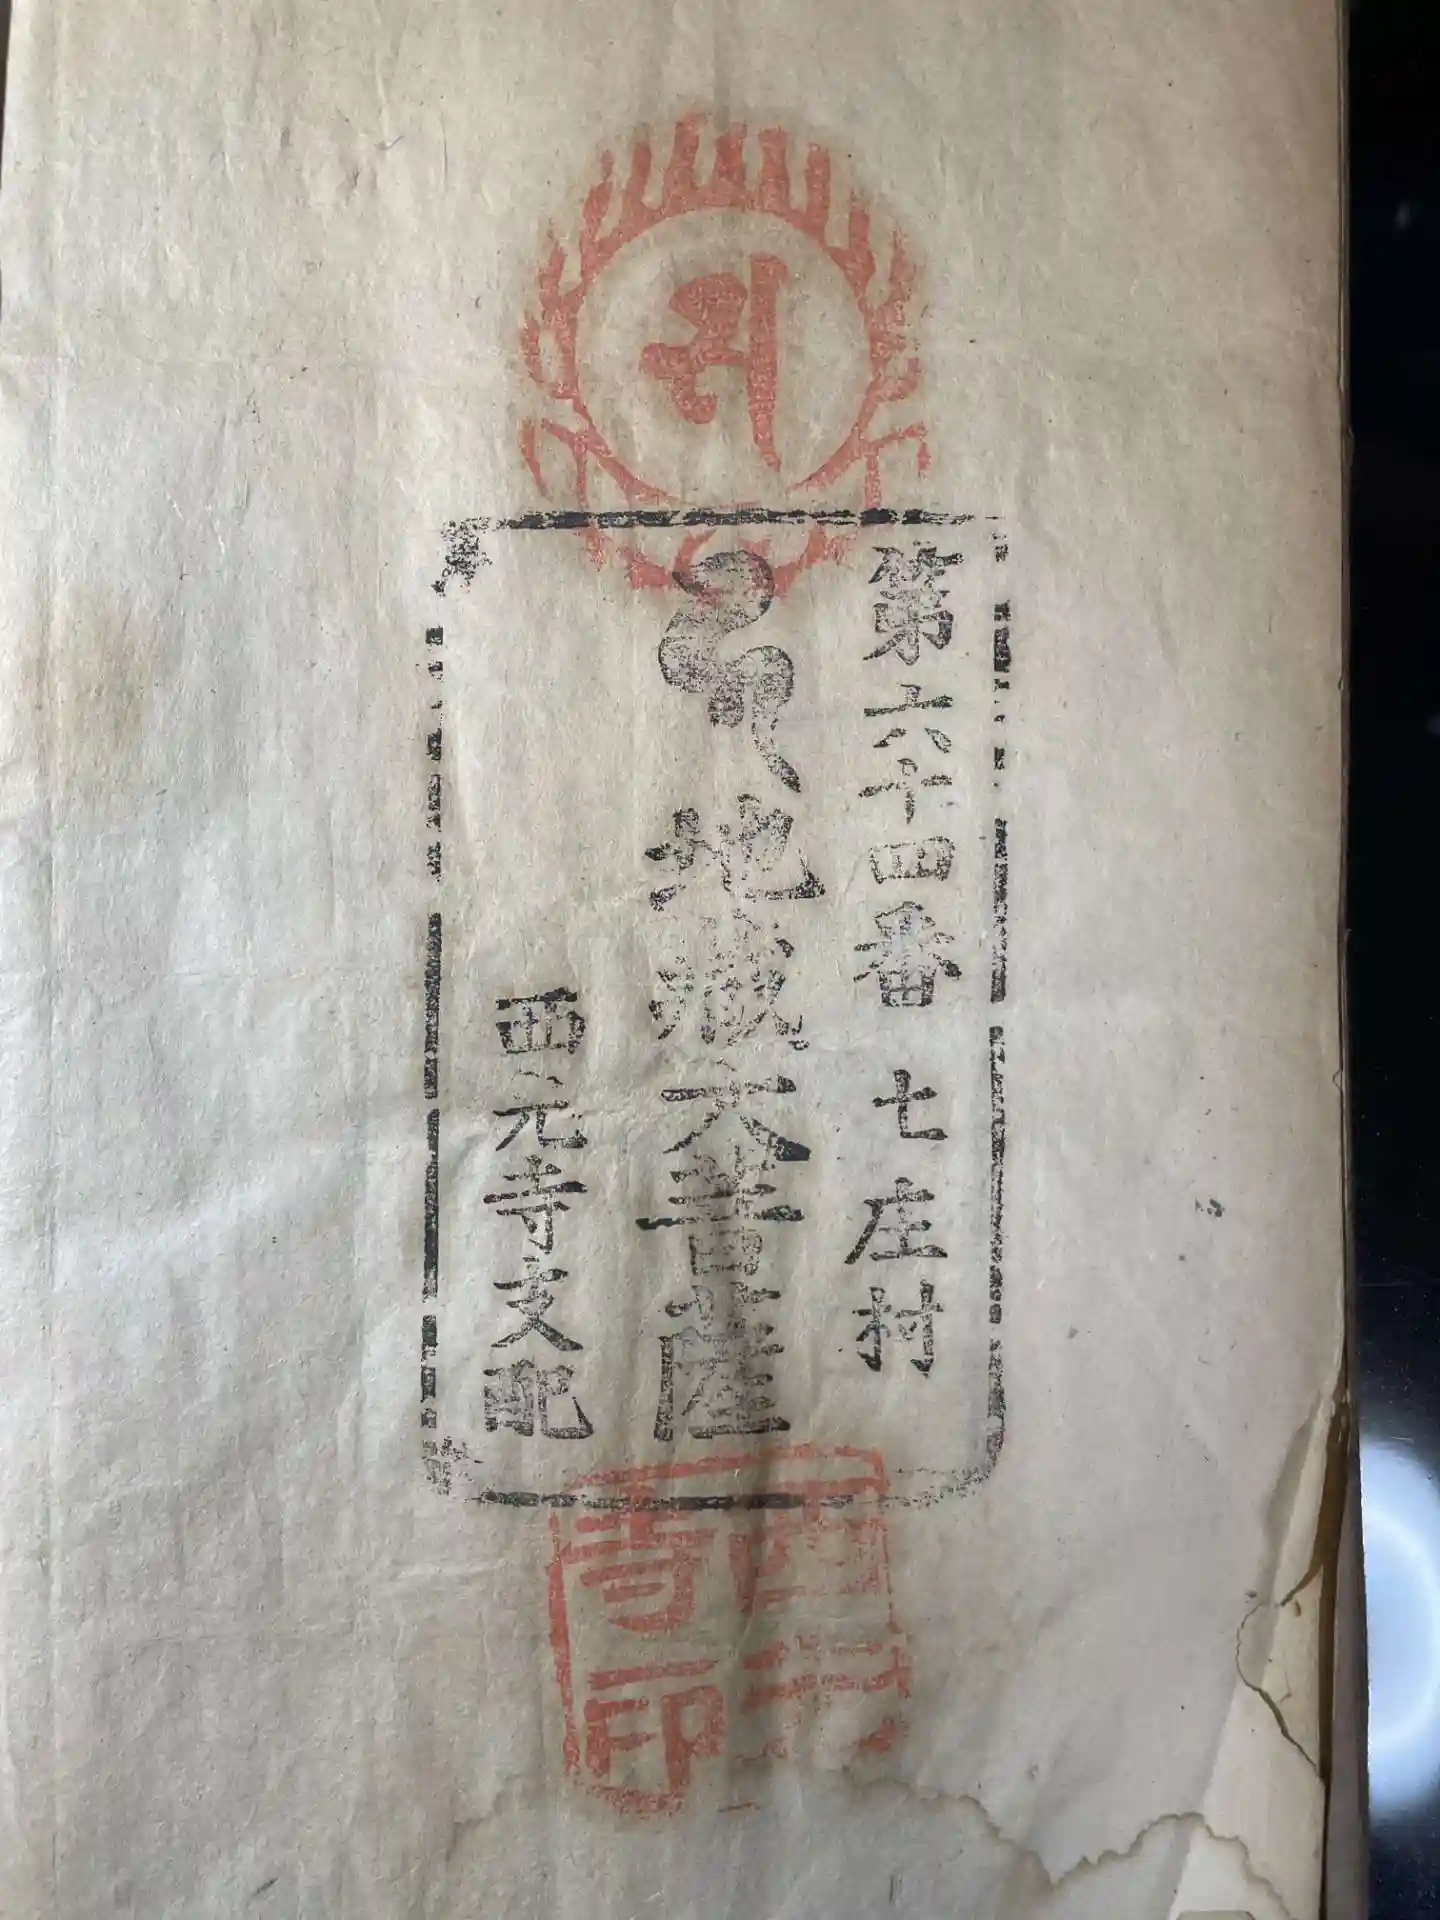 第六十四番 七庄村
地藏大菩薩
西元寺支配